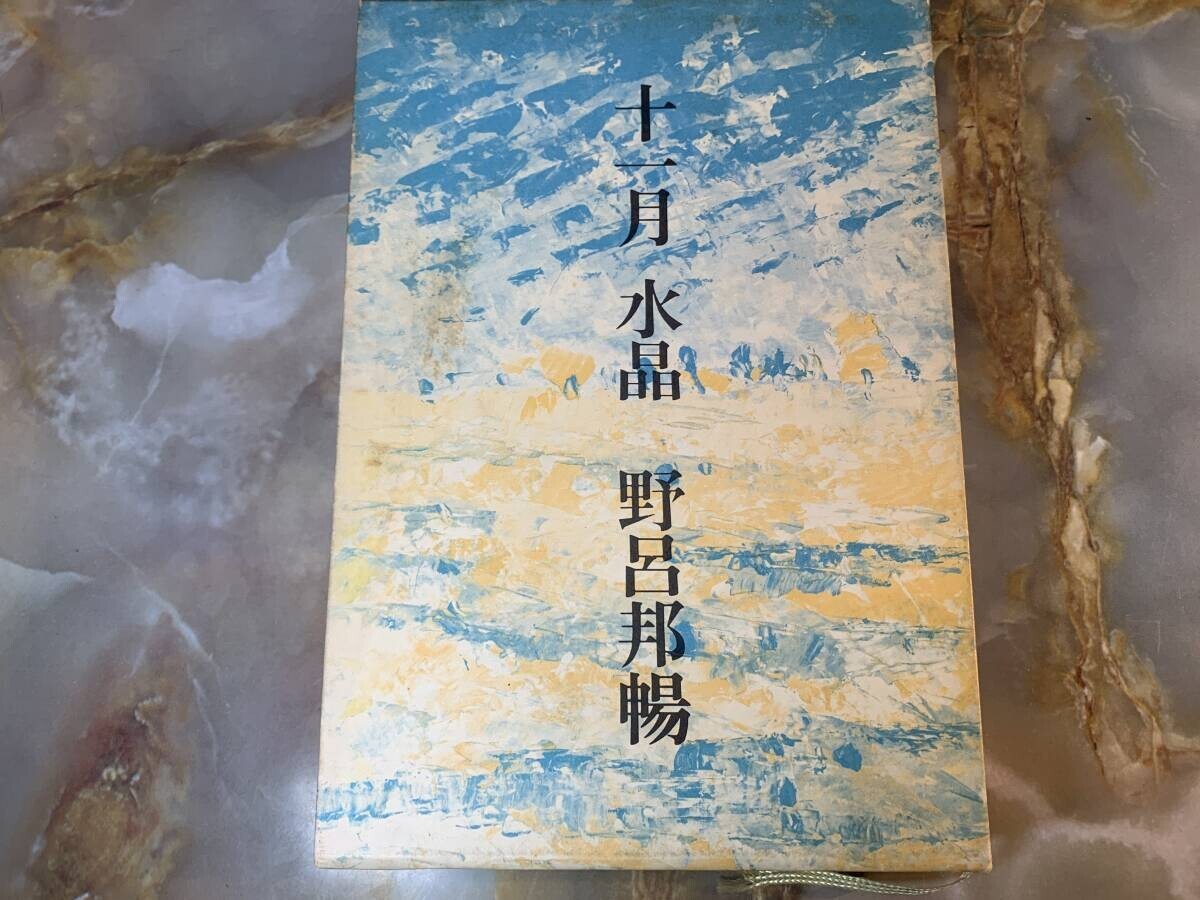 十一月 水晶 野呂邦暢